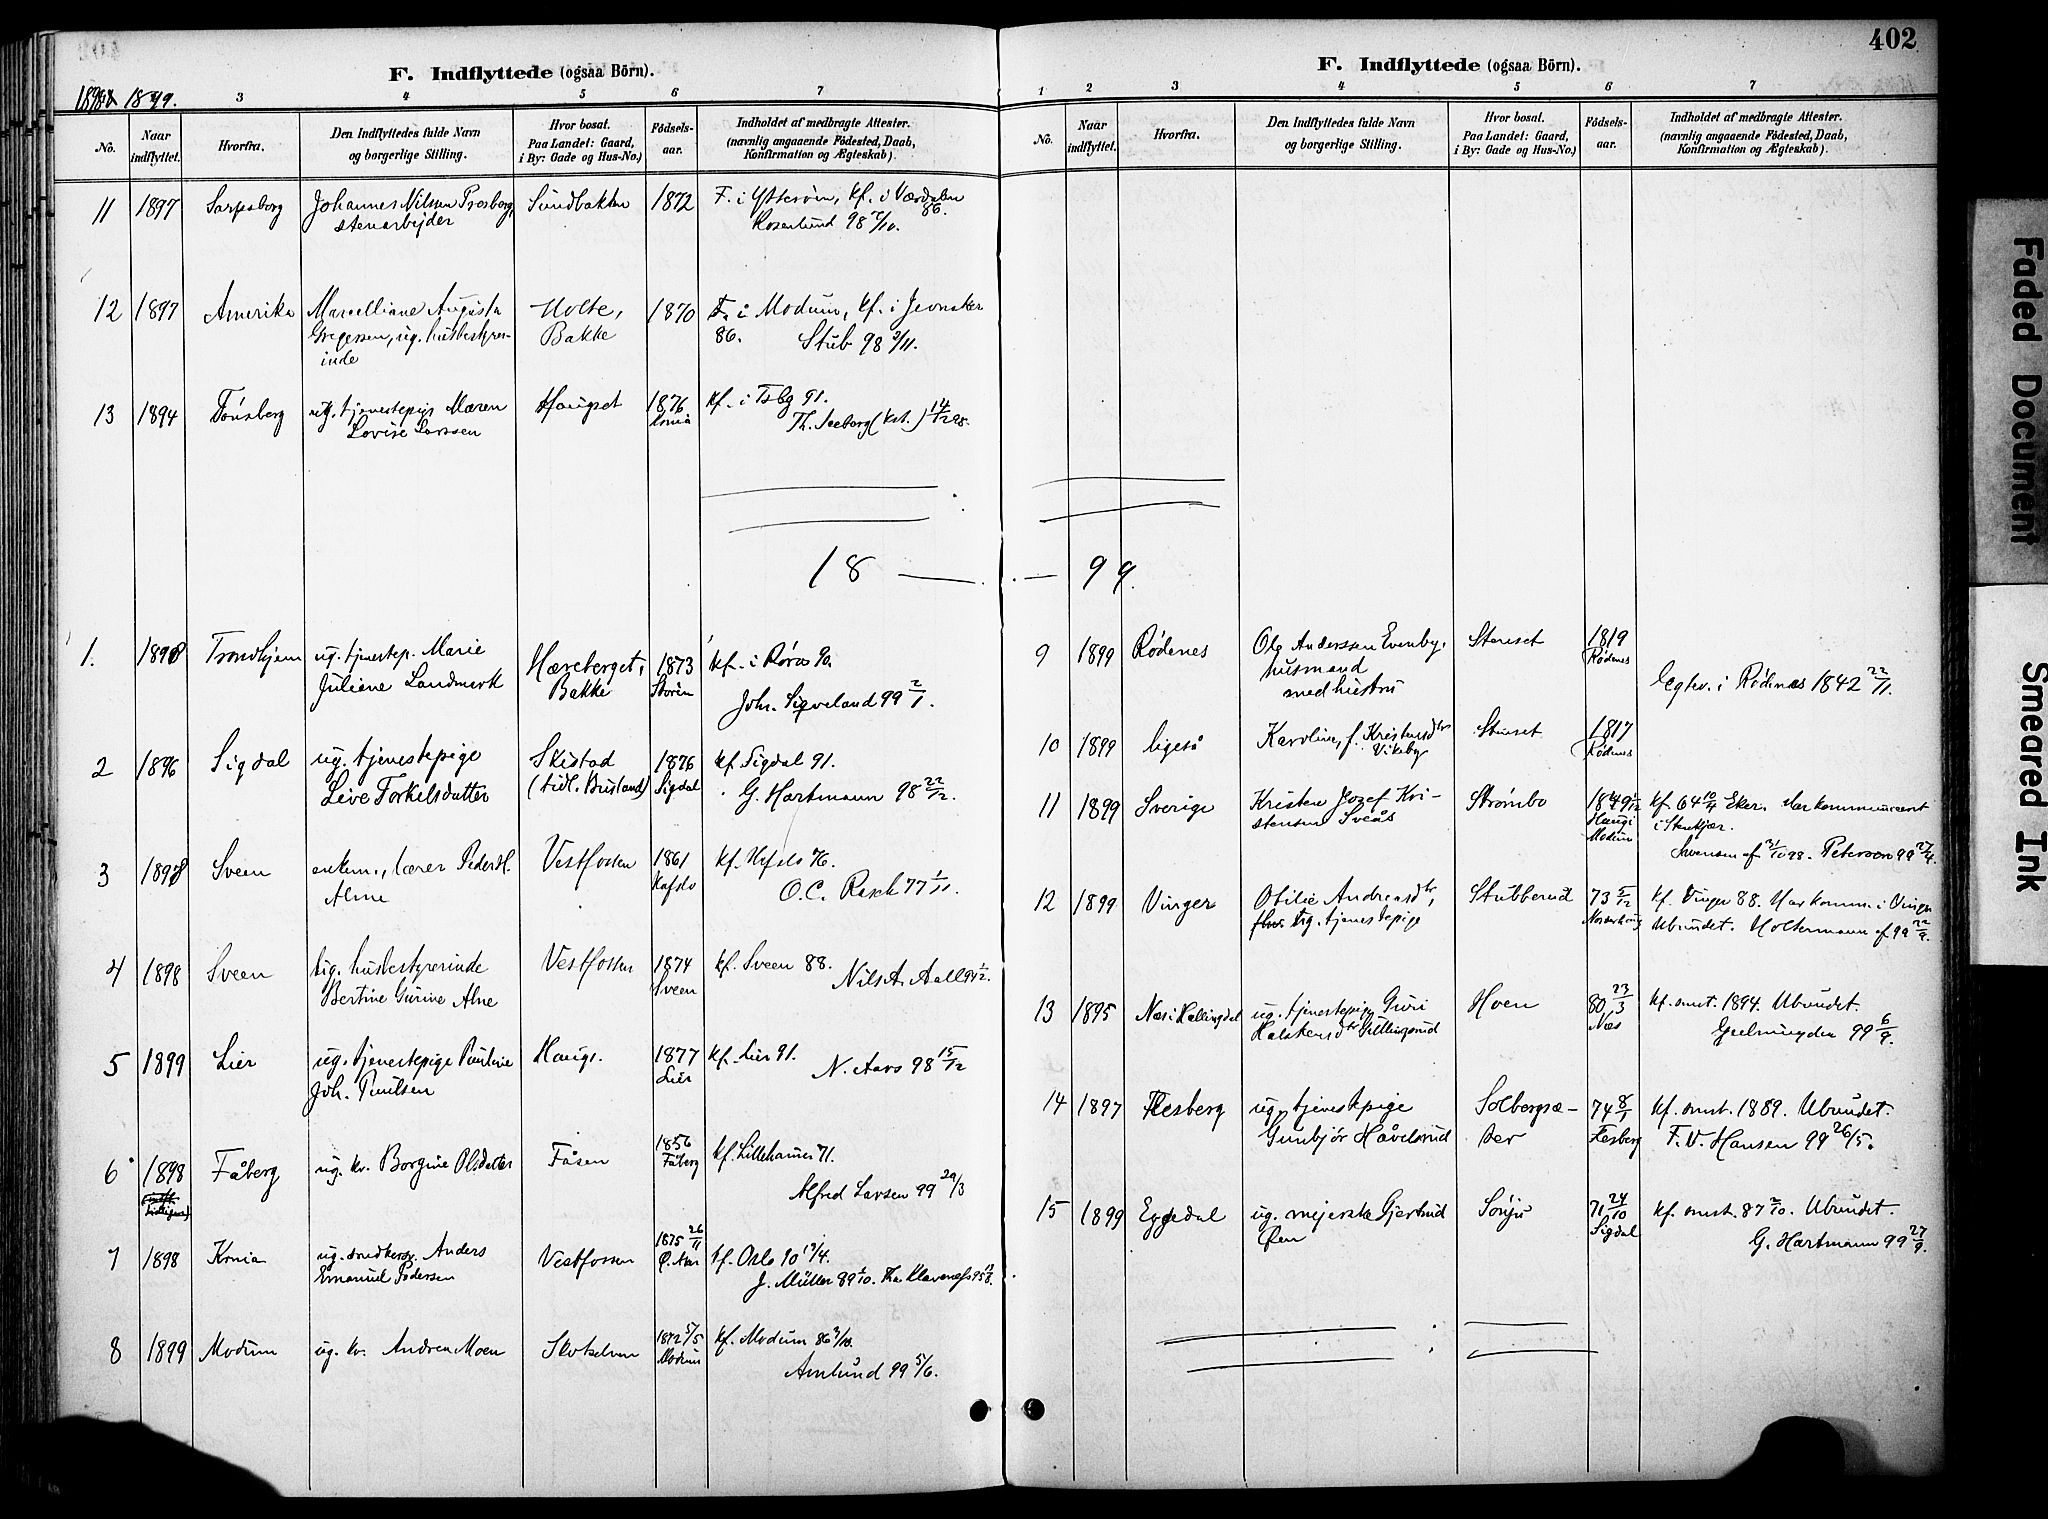 402
F. Indflyttede (ogsaa Börn).
1898 & 1899.
3 4 5 6 7
No.
Naar indflyttet.
Hvorfra.
Den Indflyttedes fulde Navn
og borgerlige Stilling.
Hvor bosat.
Paa Landet: Gaard,
i By: Gade og Hus-No.)
Födsels-
aar.
Indholdet af medbragte Attester.
(navnlig angaaende Födested, Daab,
Konfirmation og Ægteskab).
11 1897 Sarpsborg Johannes Nilsen Prosborg, Sundbakken 1872 F. i Ytterøen, kf. i Værdalen
stenarbejder 86.
Rosenlund 98
12 1897 Amerika Marcelliane Augusta Holte, 1870 F. i Modum, kf. i Jevnaker
Gregersen, ug. husbestyrer- Bakke 86. Stub 98 3/11.
inde
13 1894 Tönsberg ug. tjenestepige Maren Haugset 1876 kf. i Tsbg 91.
Lovise Larssen Th. Seeborg (kst.) 14/12 98.
18 — . — 99.
1. 1898 Trondhjem ug. tjenestep. Marie Hæreberget, 1873 kf. i Røros 90.
Juliane Landmerk Bakke Støren Joh. Sigveland 99 2/1.
2 1896 Sigdal ug. tjenestepige Skistad 1876 kf. Sigdal 91.
Live Torkelsdatter (tidl. Brusland) Sigdal G. Hartmann 98 22/12.
3 1898 Sveen enkem., lærer Peder Vestfossen 1861 kf. Hafslo 76.
Alme Hafslo O. C. Rasch 77 1/11.
4 1898 Sveen ug. husbestyrerinde Vestfossen 1874 kf. Sveen 88.
Bertine Gurine Alne Sveen Nils A. Aall 94 1/2.
5 1899 Lier ug. tjenestepige Pauline Haugs. 1877 kf. Lier 91.
Joh. Paulsen Lier N. Aars 98 15/12
6 1898 Fåberg ug. kv. Borgine Olsdatter Fåsen 1856 kf. Lillehamer 71.
Fåberg
Alfred Larsen 99 29/3
7 1898 Krnia ug. snedkersv. Anders Vestfossen 1875 26/11 kf. Oslo 90 13/4.
Emanuel Pedersen Ø. Aker J. Müller 89 1/10. Klavenæss 95
8 1899 Modum ug. kv. Andrea Moen Skotselven 1872 5/5 kf. Modum 86 3/10.
Modum Amlund 99 5/6.
F. Indflyttede (ogsaa Börn).
1 2 3 4 5 6 7
No.
Naar indflyttet.
Hvorfra.
Den Indflyttedes fulde Navn
og borgerlige Stilling.
Hvor bosat.
Paa Landet: Gaard,
i By: Gade og Hus-No.)
Födsels-
aar.
Indholdet af medbragte Attester.
(navnlig angaaende Födested, Daab,
Konfirmation og Ægteskab).
9 1899 Rødenes Ole Anderssen Evenby, Stenset 1819
husmand Rødenes
med hustru Egtev. i Rødenæs 1842 22/11.
10 1899 ligeså Karoline, f. Kristensdtr Stenset 1817
Vikeby Rødenes
11 1899 Sverige Kristen Jozef Kri- Strømbo 1849 kf. 64 10/4 Eker. Har kommuniceret
stensen Sveås Haugi i Stenkjær.
Modum Svensen af 98. Peterson 99 27/4.
12 1899 Vinger Otilie Andreasdtr, Stubberud 73 5/12 kf. Vinger 88. Har komm. i Vinger
ug. tjenestepige Ubundet. Holtermann af 99 22/9.
13 1895 Næs i Hallingdal ug. tjenestepige Guri Hoen 80 23/3 kf. smst. 1894. Ubundet.
Halstensdtr Gullingsrud Næs Geelmuyden 99 6/9.
14 1897 Flesberg ug. tjenestepige Solbergsæ- 74 8/1 kf. smst. 1889. Ubundet.
Gunbjör Håvelsrud ter Flesberg F. V. Hansen 99 26/5.
15 1899 Eggedal ug. mejerske Gjertrud Sønju 71 24/10 kf. smst. 87 2/10. Ubundet.
Øen Sigdal G. Hartmann 99 27/9.
Faded Document
Smeared Ink